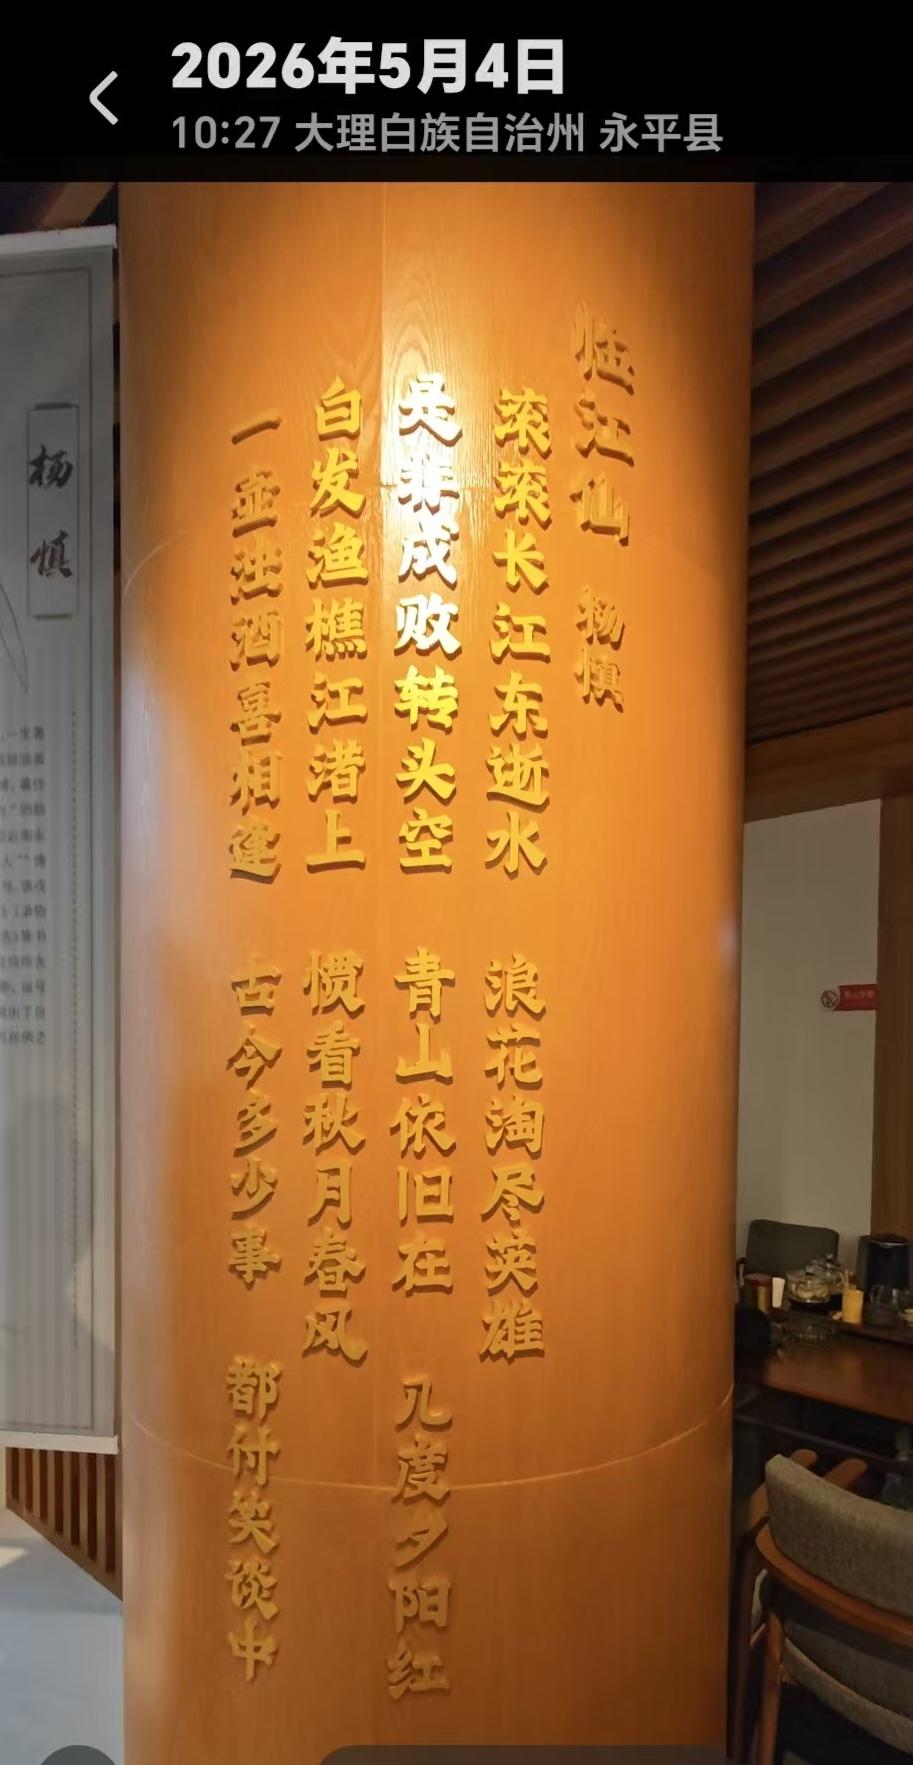 2026年5月4日
10:27 大理白族自治州 永平县
临江仙 杨慎
滚滚长江东逝水 浪花淘尽英雄
是非成败转头空 青山依旧在 几度夕阳红
白发渔樵江渚上 惯看秋月春风
一壶浊酒喜相逢 古今多少事 都付笑谈中
杨慎